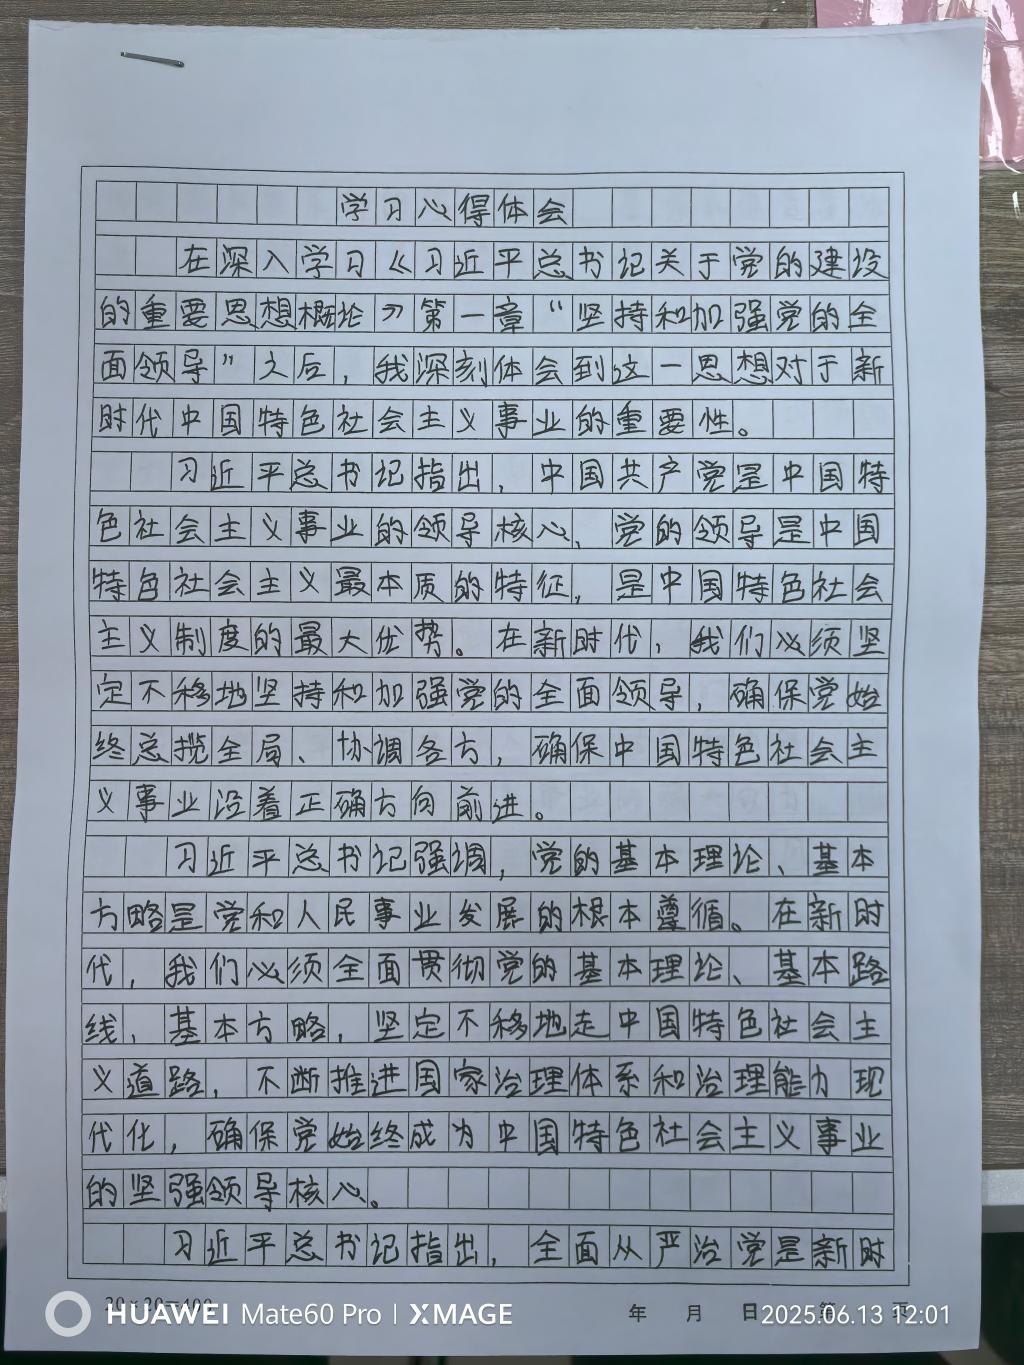 学习心得体会
在深入学习《习近平总书记关于党的建设
的重要思想概论》第一章“坚持和加强党的全
面领导”之后，我深刻体会到这一思想对于新
时代中国特色社会主义事业的重要性。
习近平总书记指出，中国共产党是中国特
色社会主义事业的领导核心、党的领导是中国
特色社会主义最本质的特征，是中国特色社会
主义制度的最大优势。在新时代，我们必须坚
定不移地坚持和加强党的全面领导，确保党始
终总揽全局、协调各方，确保中国特色社会主
义事业沿着正确方向前进。
习近平总书记强调，党的基本理论、基本
方略是党和人民事业发展的根本遵循。在新时
代，我们必须全面贯彻党的基本理论、基本路
线，基本方略，坚定不移地走中国特色社会主
义道路，不断推进国家治理体系和治理能力现
代化，确保党始终成为中国特色社会主义事业
的坚强领导核心。
习近平总书记指出，全面从严治党是新时
20×20=400
年 月 日 第 页
HUAWEI Mate60 Pro | XMAGE
2025.06.13 12:01